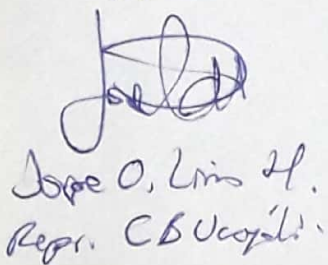 Jorge O. Lino H.
Repr. CB Ucayali.